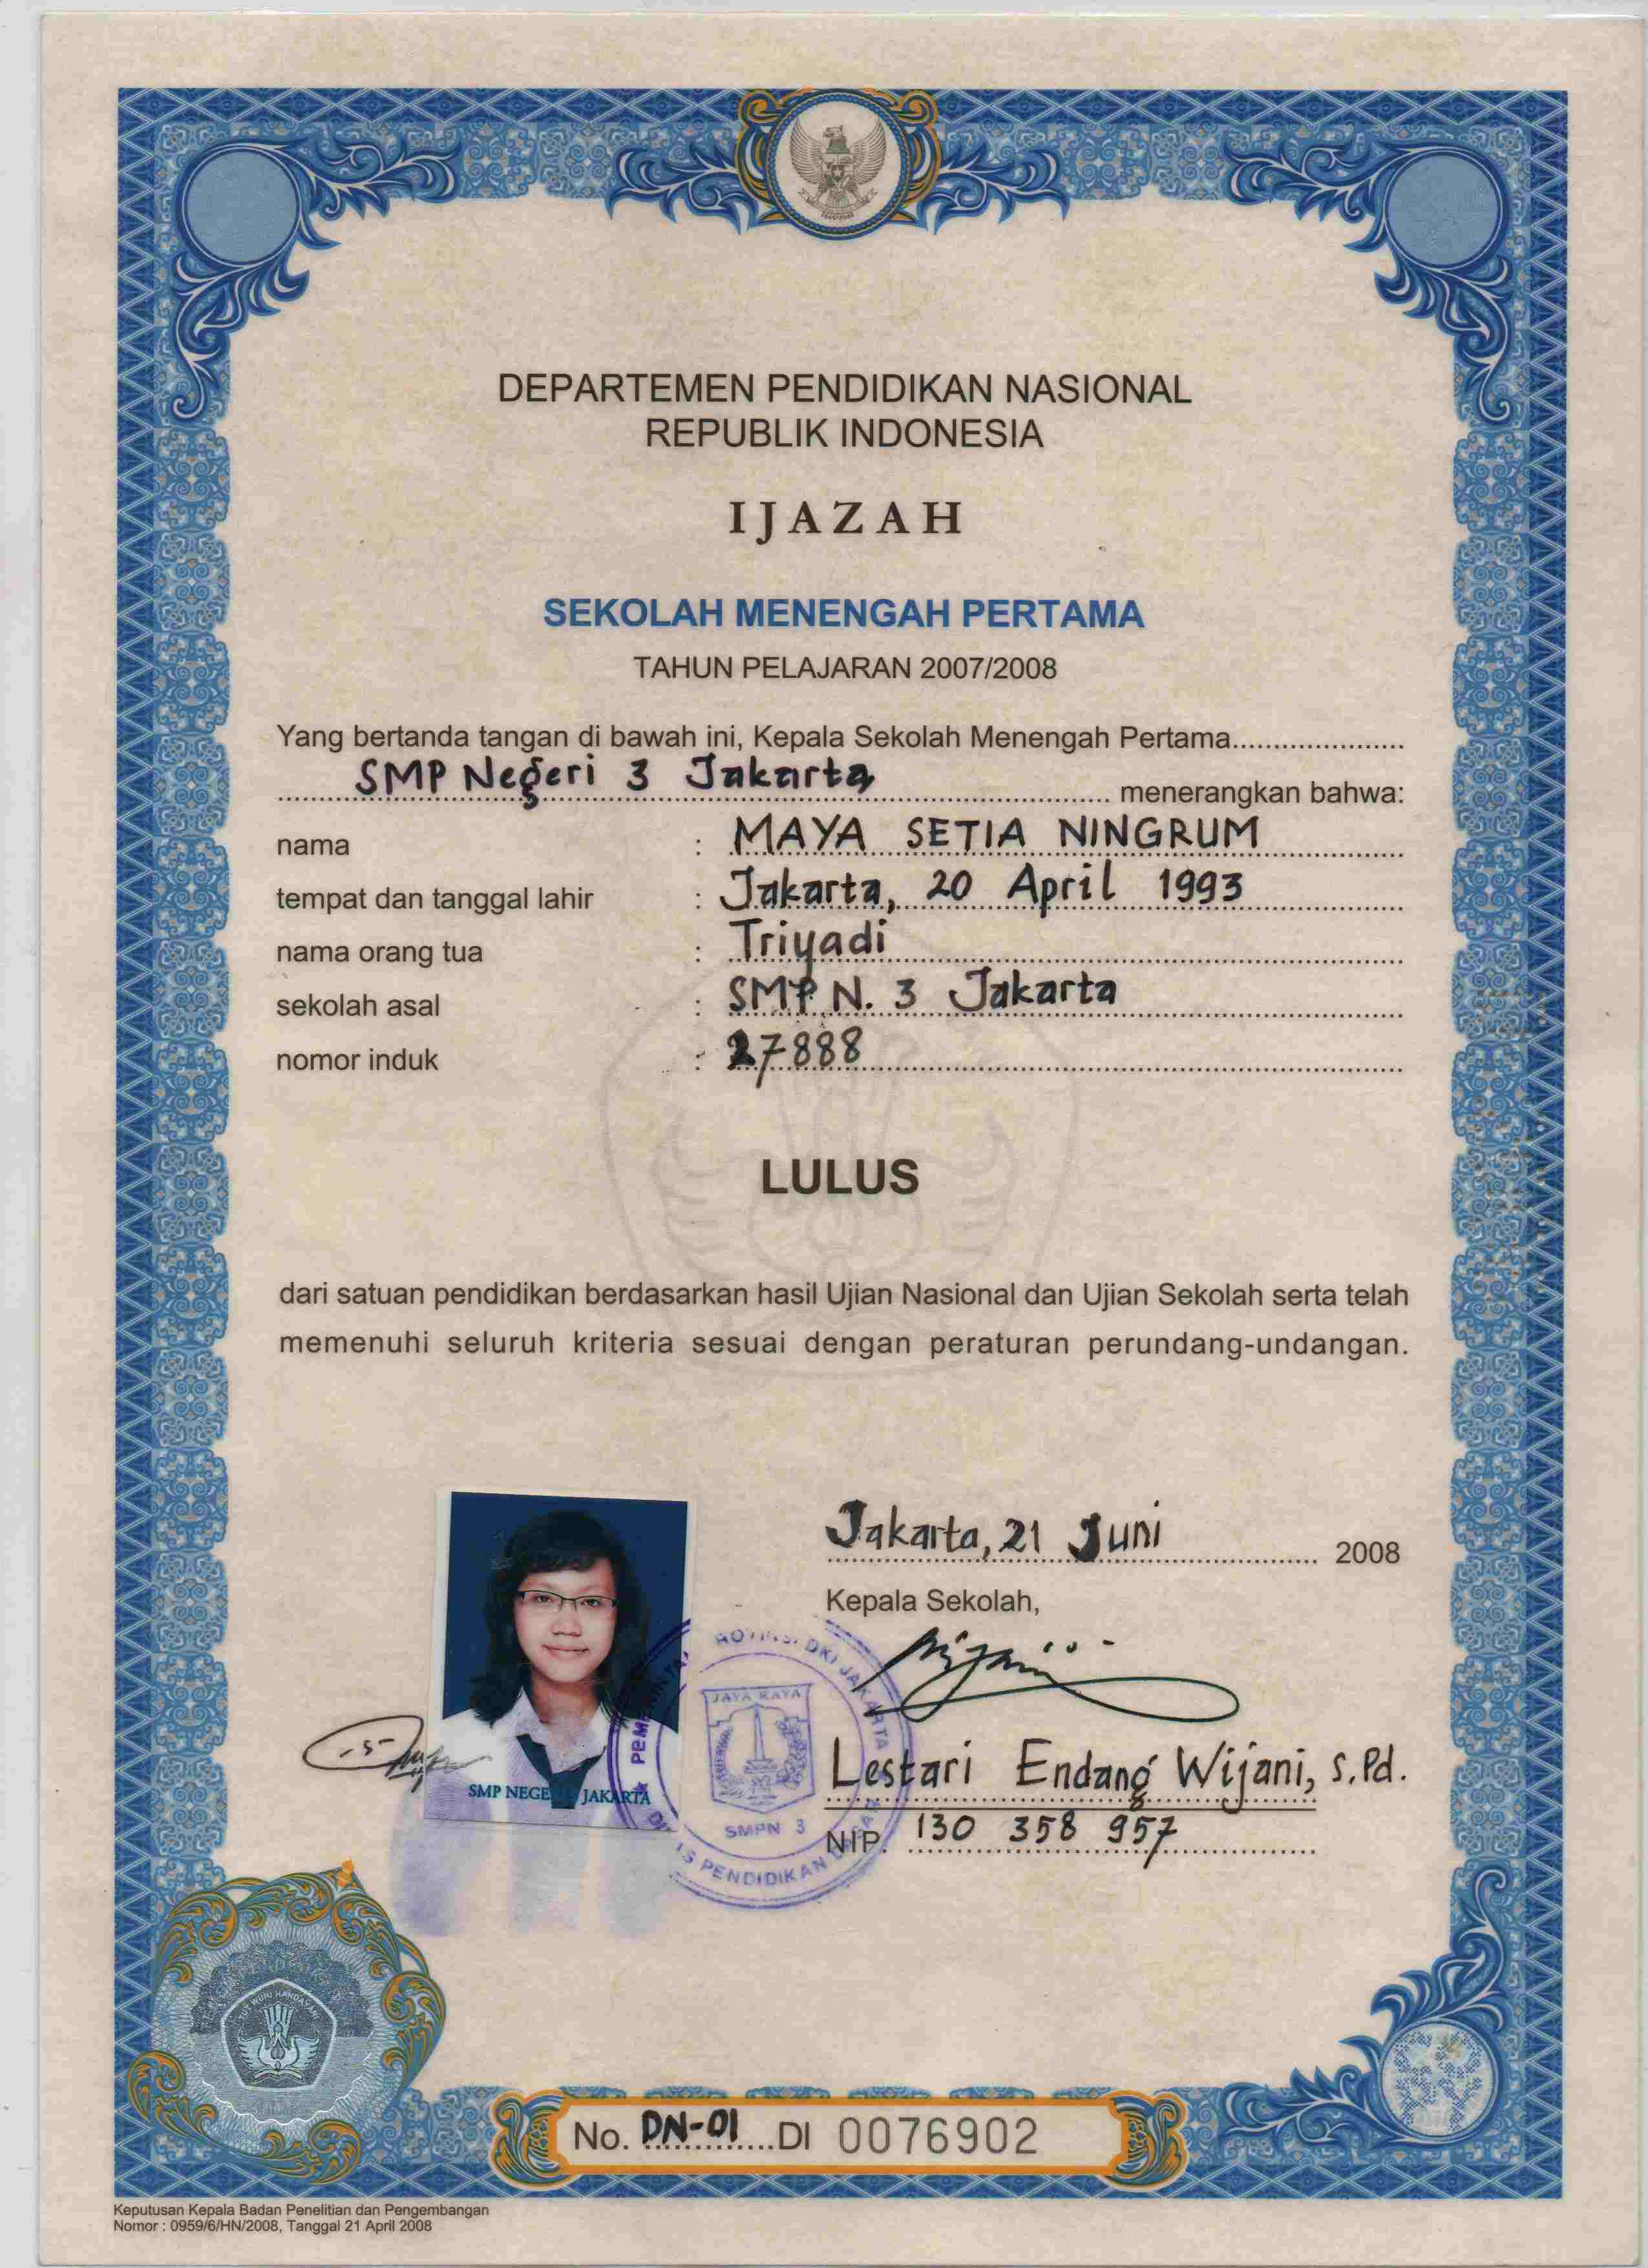 DEPARTEMEN PENDIDIKAN NASIONAL
REPUBLIK INDONESIA
IJAZAH
SEKOLAH MENENGAH PERTAMA
TAHUN PELAJARAN 2007/2008
Yang bertanda tangan di bawah ini, Kepala Sekolah Menengah Pertama
SMP Negeri 3 Jakarta menerangkan bahwa:
nama : MAYA SETIA NINGRUM
tempat dan tanggal lahir : Jakarta, 20 April 1993
nama orang tua : Triyadi
sekolah asal : SMP N. 3 Jakarta
nomor induk : 27888
LULUS
dari satuan pendidikan berdasarkan hasil Ujian Nasional dan Ujian Sekolah serta telah
memenuhi seluruh kriteria sesuai dengan peraturan perundang-undangan.
Jakarta, 21 Juni 2008
Kepala Sekolah,
Lestari Endang Wijani, S.Pd.
NIP. 130 358 957
SMP NEGE JAKARTA
DKI JAKARTA
JAYA RAYA
SMPN 3
PENDIDIKAN
TUT WURI HANDAYANI
No. DN-01 DI 0076902
Keputusan Kepala Badan Penelitian dan Pengembangan
Nomor : 0959/6/HN/2008, Tanggal 21 April 2008